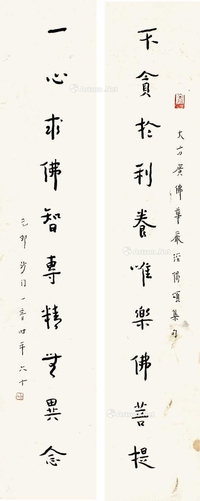 大方廣佛華嚴經偈頌集句
不貪於利養唯樂佛菩提
一心求佛智專精無異念
己卯 一音時年六十